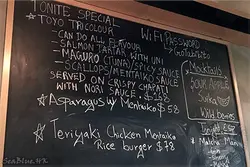 TONITE SPECIAL
* TOYO TRICOLOUR
- CAN DO ALL FLAVOUR
- SALMON TARTAR WITH UNI
- MAGURO (TUNA)/SPICY SAUCE
- SCALLOPS/MENTAIKO SAUCE
SERVED ON CRISPY CHAPATI
WITH NORI SAUCE
* Asparagus w Mentaiko $58
* Teriyaki Chicken Mentaiko
Rice burger $78
WIFI PASSWORD
Mocktails
SOUR APPLE
Matcha
SeaBlue.HK